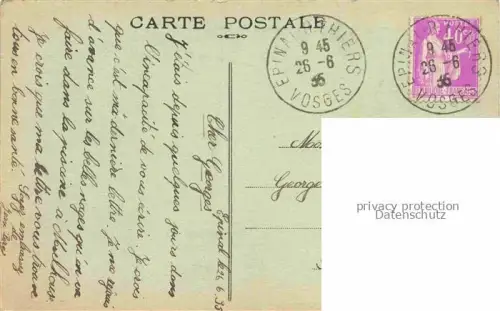 CARTE POSTALE
EPINAL R. THIERS
9 45
26 - 6
35
VOSGES
EPINAL R. THIERS
9 45
26 - 6
35
VOSGES
Mo
George
privacy protection
Datenschutz
Epinal le 26.6.35
Cher Georges
J'étais depuis quelques jours dans
l'incapacité de vous écrire. Je crois
que c'est ma dernière lettre. Je me réjouis
d'avance sur les belles nages qu'on va
faire dans la piscine à Mulhouse.
Je crois que ma lettre vous trouve
tous en bonne santé. Soyez embrassés
de